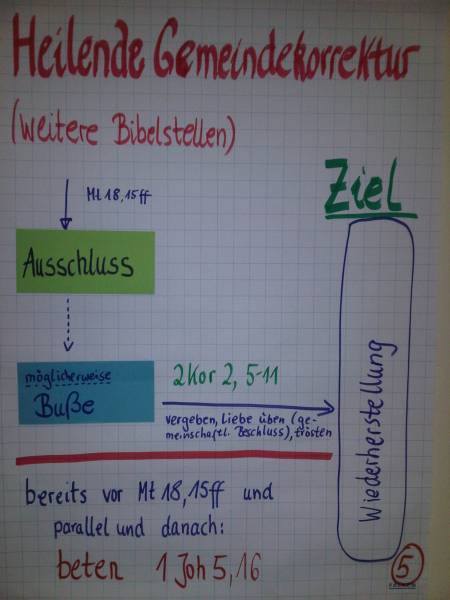 Heilende Gemeindekorrektur
(weitere Bibelstellen)
Ziel
Mt 18,15ff
Ausschluss
möglicherweise
Buße
2 Kor 2, 5-11
vergeben, Liebe üben (ge-
meinschaftl. Beschluss), trösten
Wiederherstellung
bereits vor Mt 18,15ff und
parallel und danach:
beten 1 Joh 5,16
5